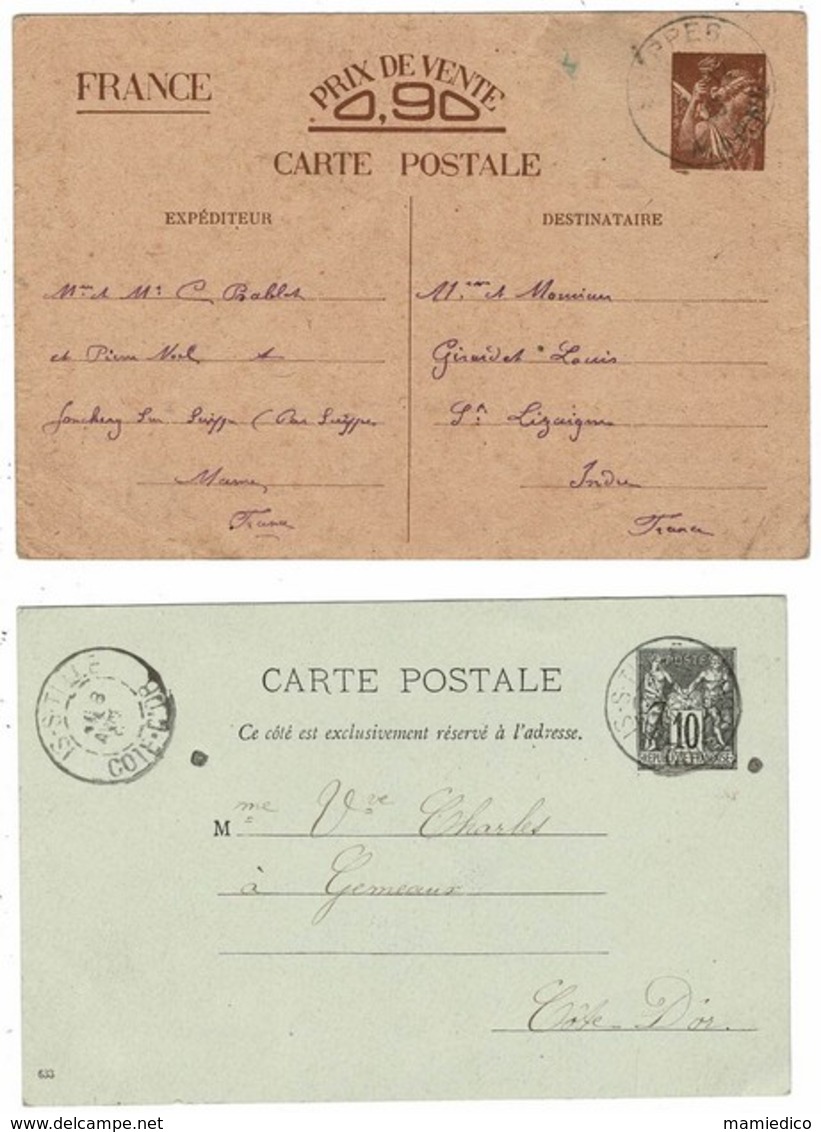 FRANCE
PRIX DE VENTE
0,90
CARTE POSTALE
SUIPPES
EXPÉDITEUR
Mme et Mr C Bablot
et Pierre Noël
Jonchery Sur Suippe (Par Suippes
Marne
France
DESTINATAIRE
M.me et Monsieur
Girardot Louis
Ste Lizaigne
Indre
France
IS-S-TILLE
COTE-D'OR
CARTE POSTALE
Ce côté est exclusivement réservé à l'adresse.
POSTES
10
REPUBLIQUE FRANÇAISE
IS-S-T
Mme Vve Charles
à Gemeaux
Côte-D'or.
633
www.delcampe.net
mamiedico